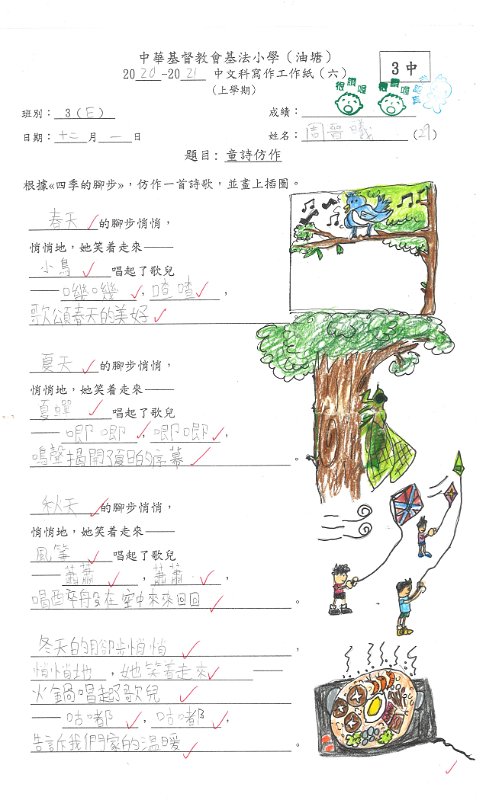 中華基督教會基法小學（油塘）
2020-2021 中文科寫作工作紙（六）
（上學期）
3中
班別：3(E)
成績：
日期：十二月一日
姓名：周晉曦(27)
題目：童詩仿作
根據«四季的腳步»，仿作一首詩歌，並畫上插圖。
春天的腳步悄悄，
悄悄地，她笑着走來——
小鳥唱起了歌兒
——嘰嘰，喳喳，
歌頌春天的美好。
夏天的腳步悄悄，
悄悄地，她笑着走來——
夏蟬唱起了歌兒
——唧唧，唧唧，
鳴聲揭開了夏日的序幕。
秋天的腳步悄悄，
悄悄地，她笑着走來——
風箏唱起了歌兒
——蕭蕭，蕭蕭，
唱歌在空中來來回回。
冬天的腳步悄悄
悄悄地，她笑着走來——
火鍋唱起歌兒
——咕嘟，咕嘟，
告訴我們家的溫暖。